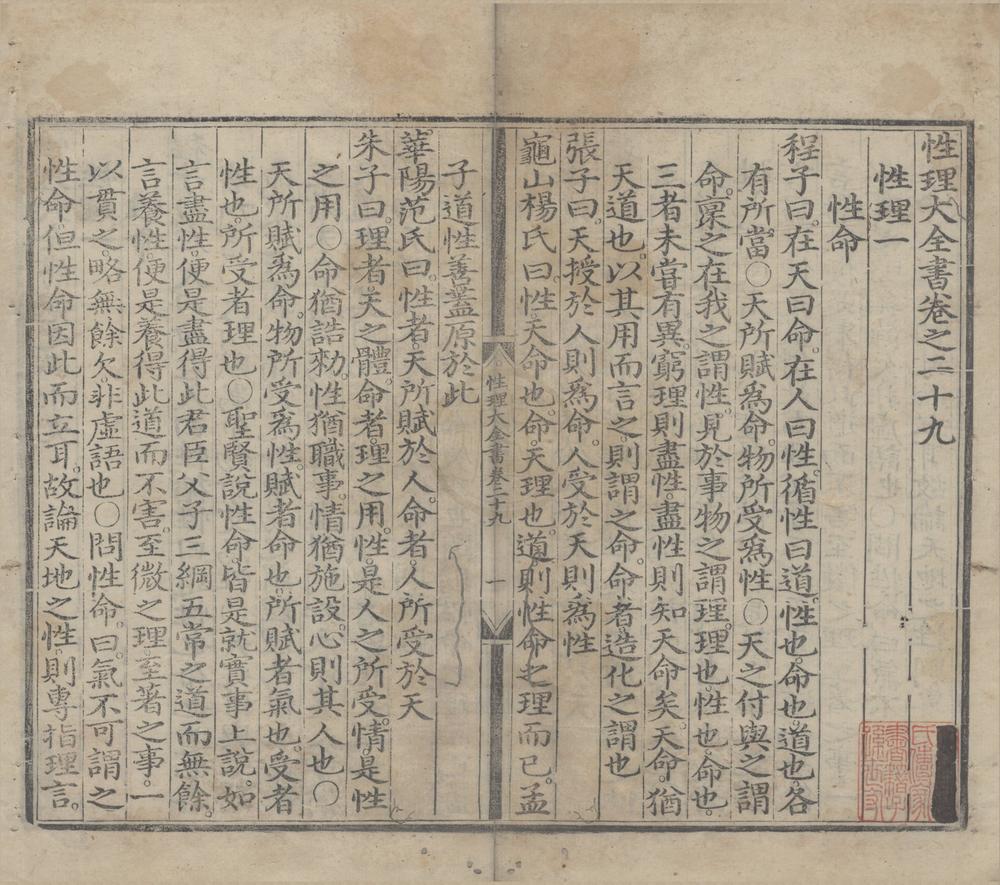 性理大全書卷之二十九
性理一
性命
程子曰。在天曰命。在人曰性。循性曰道。性也。命也。道也。各
有所當○天所賦爲命。物所受爲性○天之付與之謂
命。稟之在我之謂性。見於事物之謂理。理也。性也。命也。
三者未嘗有異。窮理則盡性。盡性則知天命矣。天命。猶
天道也。以其用而言之。則謂之命。命者造化之謂也
張子曰。天授於人則爲命。人受於天則爲性
龜山楊氏曰。性。天命也。命。天理也。道。則性命之理而已。孟
性理大全書卷二十九 一
子道性善蓋原於此
華陽范氏曰。性者。天所賦於人。命者。人所受於天
朱子曰。理者。天之體。命者。理之用。性。是人之所受。情。是性
之用○命猶誥勑。性猶職事。情猶施設。心則其人也○
天所賦爲命。物所受爲性。賦者命也。所賦者氣也。受者
性也。所受者理也○聖賢說性命。皆是就實事上說。如
言盡性。便是盡得此君臣父子三綱五常之道而無餘。
言養性。便是養得此道而不害。至微之理。至著之事。一
以貫之。略無餘欠。非虛語也○問性命。曰。氣不可謂之
性命。但性命因此而立耳。故論天地之性。則專指理言。